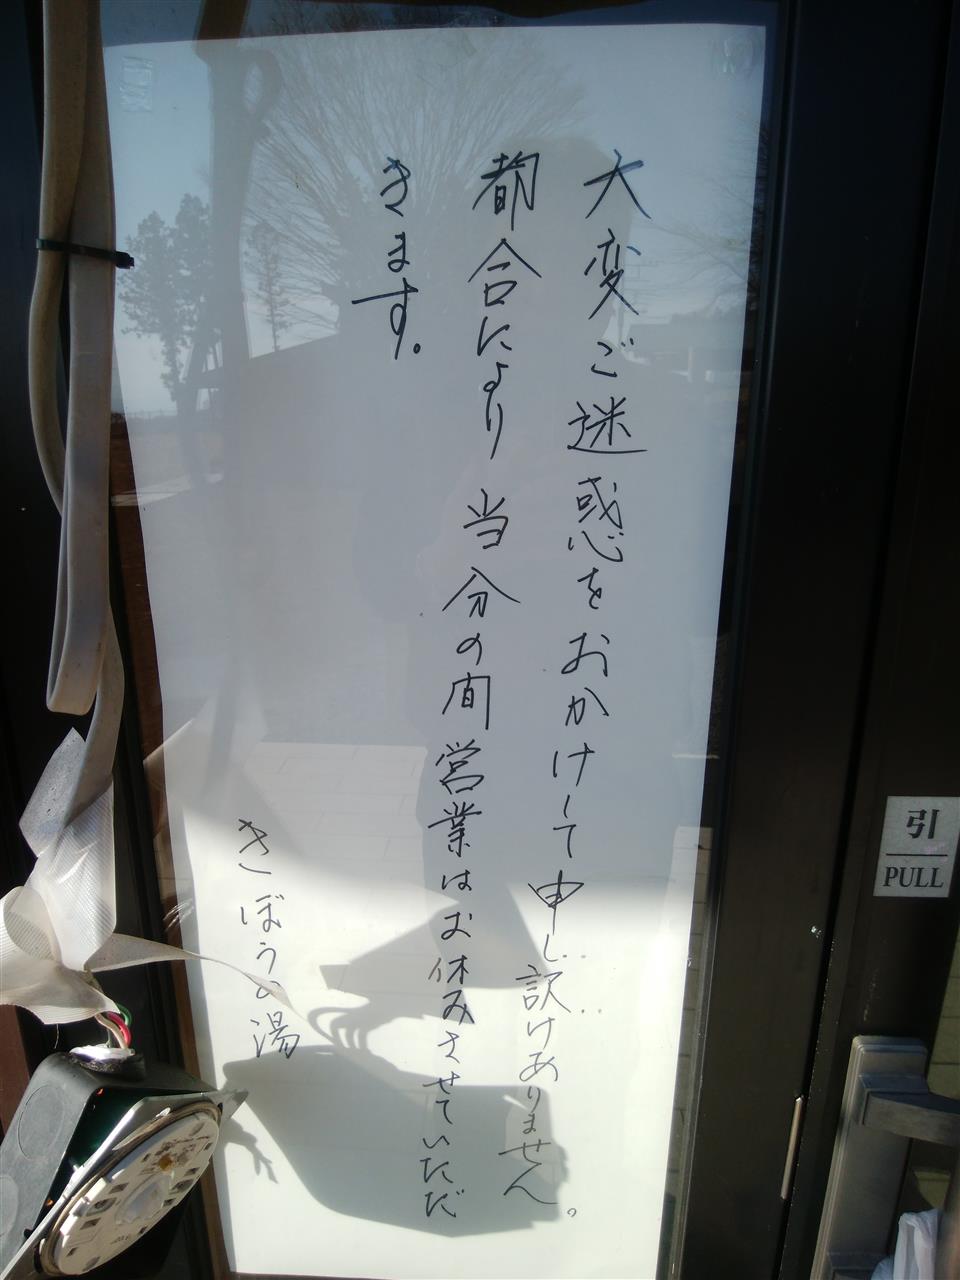 大変ご迷惑をおかけして申し訳けありません。
都合により当分の間営業はお休みさせていただ
きます。
きぼうの湯
引
PULL